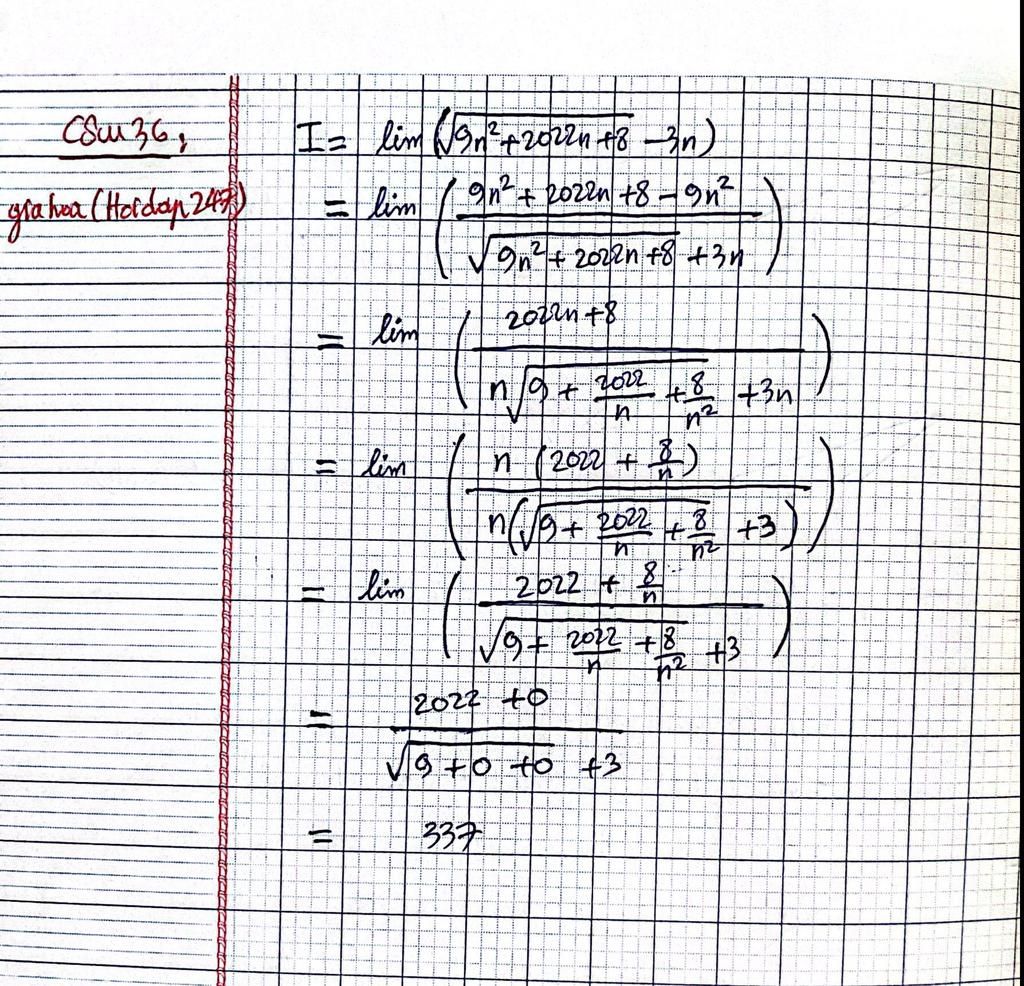 Câu 36,
giahoa (Hoidap247)
I = lim (√(9n² + 2022n + 8) - 3n)
= lim ((9n² + 2022n + 8 - 9n²) / (√(9n² + 2022n + 8) + 3n))
= lim ((2022n + 8) / (n√(9 + 2022/n + 8/n²) + 3n))
= lim (n (2022 + 8/n) / n(√(9 + 2022/n + 8/n²) + 3))
= lim ((2022 + 8/n) / (√(9 + 2022/n + 8/n²) + 3))
= (2022 + 0) / (√(9 + 0 + 0) + 3)
= 337